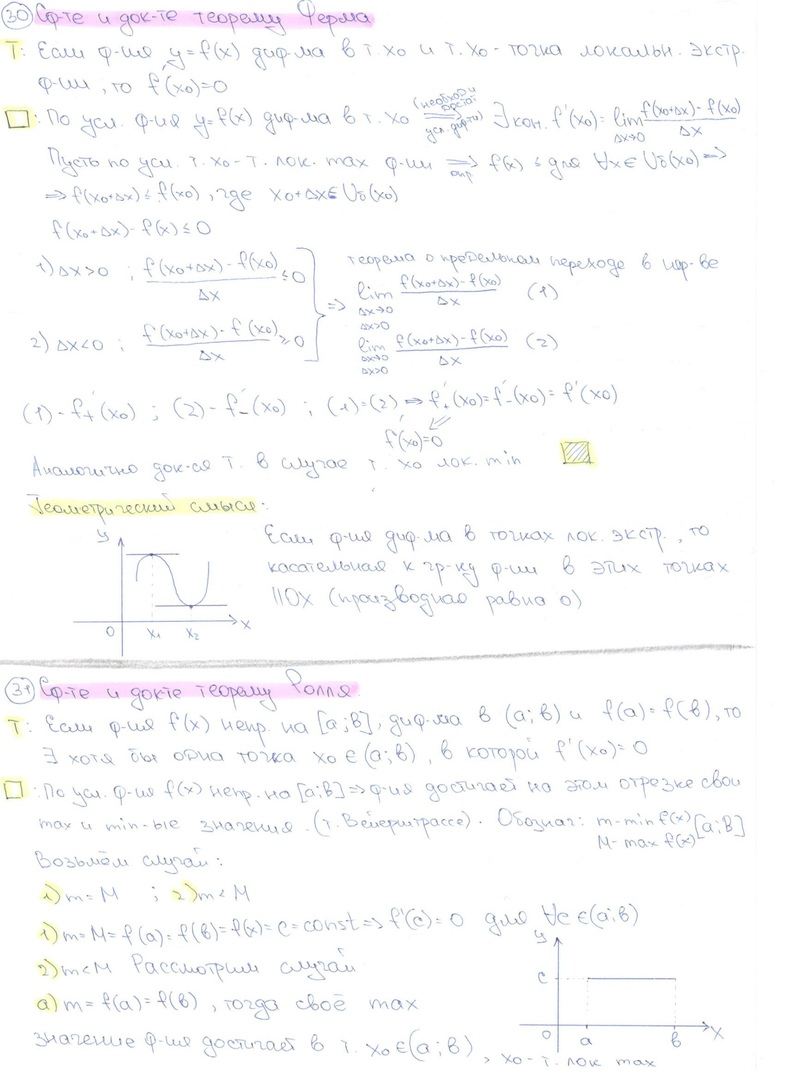 30 Сф-те и док-те теорему Ферма
Т: Если ф-ия y=f(x) диф-ма в т. x₀ и т. x₀ - точка локальн. экстр.
ф-ии, то f'(x₀)=0
□: По усл. ф-ия y=f(x) диф-ма в т. x₀ (необход и усл. диф-ти) ⟹ ∃ кон. f'(x₀)= lim Δx→0 f(x₀+Δx)-f(x₀) / Δx
Пусть по усл. т. x₀ - т. лок. max ф-ии ⟹ опр f(x) ≤ для ∀x∈Uδ(x₀) ⟹
⟹ f(x₀+Δx) ≤ f(x₀), где x₀+Δx∈Uδ(x₀)
f(x₀+Δx)-f(x) ≤ 0
1) Δx>0 ; f(x₀+Δx)-f(x₀) / Δx ≤ 0
2) Δx<0 ; f(x₀+Δx)-f(x₀) / Δx ≥ 0
⟹ теорема о предельном переходе в нер-ве
lim Δx→0 Δx>0 f(x₀+Δx)-f(x₀) / Δx (1)
lim Δx→0 Δx>0 f(x₀+Δx)-f(x₀) / Δx (2)
(1) - f₊'(x₀) ; (2) - f₋'(x₀) ; (1)=(2) ⟹ f₊'(x₀)=f₋'(x₀)=f'(x₀)
f'(x₀)=0
Аналогично док-ся т. в случае т. x₀ лок. min
Геометрический смысл:
y
0 x₁ x₂ x
Если ф-ия диф-ма в точках лок. экстр., то
касательная к гр-ку ф-ии в этих точках
||OX (производная равна 0)
31 Сф-те и док-те теорему Ролля.
Т: Если ф-ия f(x) непр. на [a;b], диф-ма в (a;b) и f(a)=f(b), то
∃ хотя бы одна точка x₀∈(a;b), в которой f'(x₀)=0
□: По усл. ф-ия f(x) непр. на [a;b] ⟹ ф-ия достигает на этом отрезке свои
max и min-ые значения. (т. Вейерштрассе). Обознач: m-min f(x) M-max f(x) [a;b]
Возьмём случай:
1) m=M ; 2) m<M
1) m=M=f(a)=f(b)=f(x)=c=const ⟹ f'(c)=0 для ∀c∈(a;b)
2) m<M Рассмотрим случай
а) m=f(a)=f(b), тогда своё max
значение ф-ия достигает в т. x₀∈(a;b), x₀-т. лок max
y
c
0 a b x